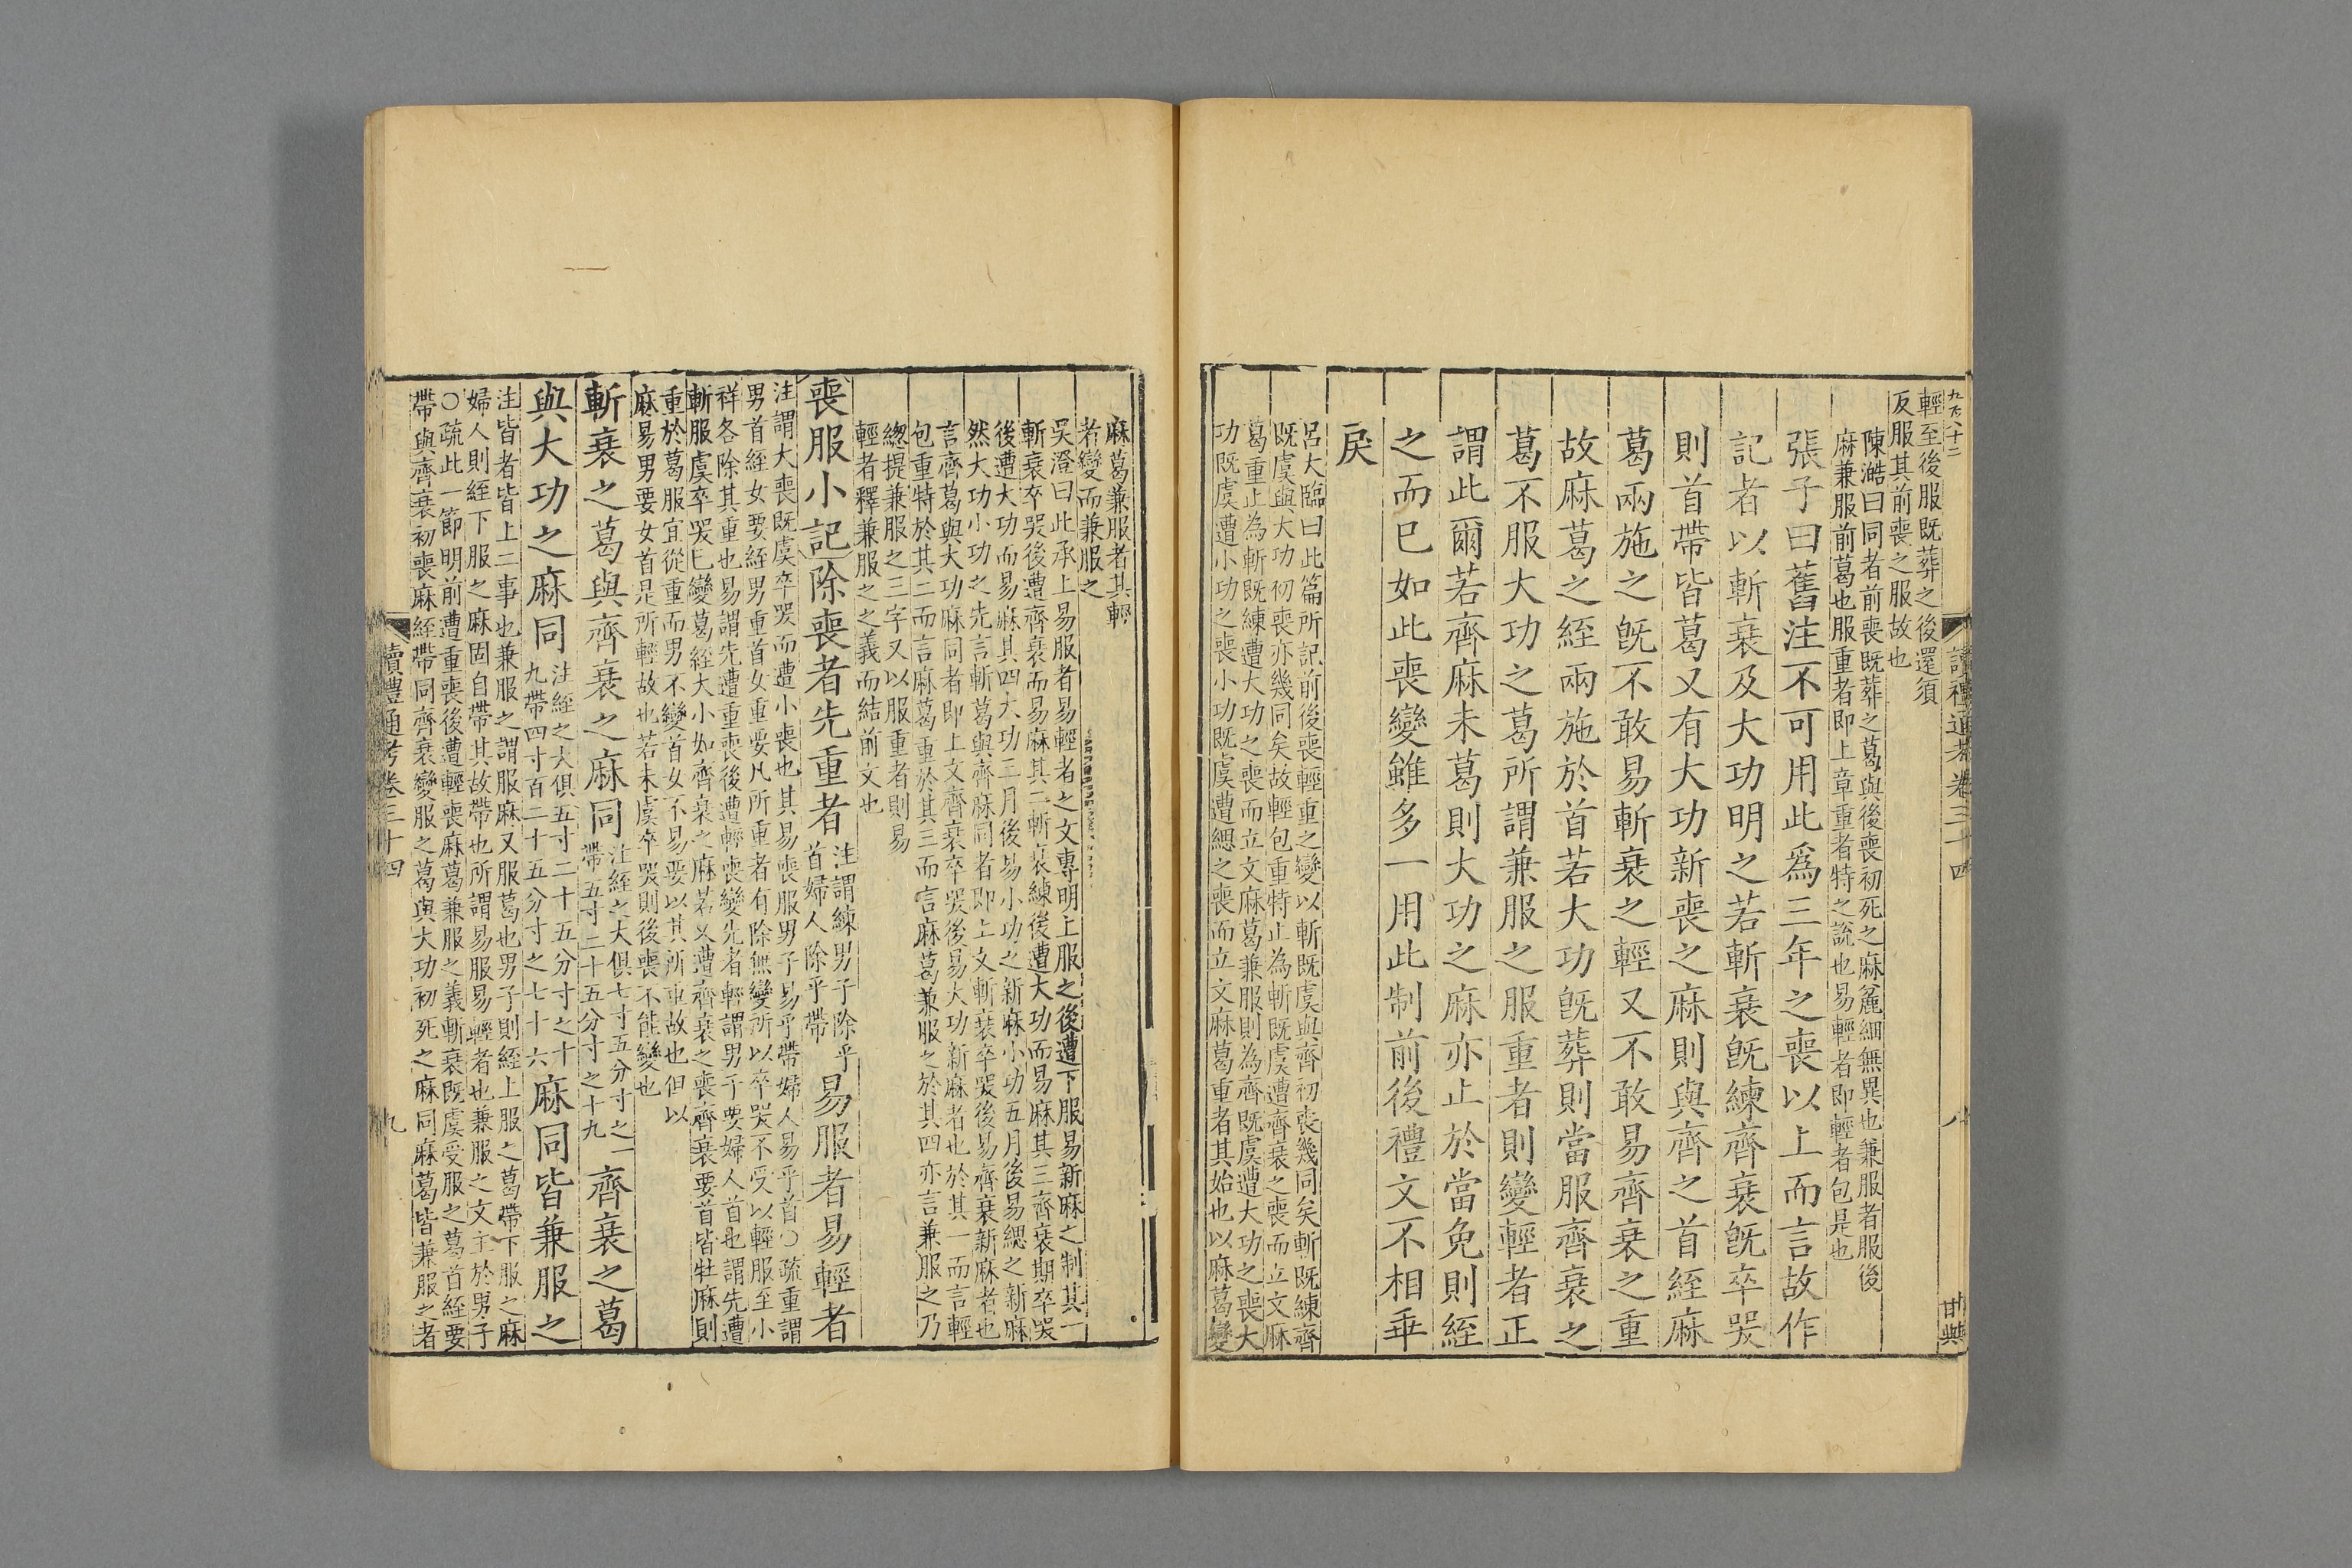 輕至後服既葬之後還須
反服其前喪之服故也
陳澔曰同者前喪既葬之葛與後喪初死之麻麄細無異也兼服者服後
麻兼服前葛也服重者即上章重者特之說也易輕者即輕者包是也
張子曰舊注不可用此爲三年之喪以上而言故作
記者以斬衰及大功明之若斬衰旣練齊衰旣卒哭
則首帶皆葛又有大功新喪之麻則與齊之首絰麻
葛兩施之旣不敢易斬衰之輕又不敢易齊衰之重
故麻葛之絰兩施於首若大功旣葬則當服齊衰之
葛不服大功之葛所謂兼服之服重者則變輕者正
謂此爾若齊麻未葛則大功之麻亦止於當免則絰
之而巳如此喪變雖多一用此制前後禮文不相乖
戾
呂大臨曰此篇所記前後喪輕重之變以斬既虞與齊初喪幾同矣斬既練齊
既虞與大功初喪亦幾同矣故輕包重特止為斬既虞遭齊衰之喪而立文麻
葛重止為斬既練遭大功之喪而立文麻葛兼服則為齊既虞遭大功之喪大
功既虞遭小功之喪小功既虞遭緦之喪而立文麻葛重者其始也以麻葛變
讀禮通考卷三十四
八
麻葛兼服者其輕
若變而兼服之
吳澄曰此承上易服者易輕者之文專明上服之後遭下服易新麻之制其一
斬衰卒哭後遭齊衰而易麻其二斬衰練後遭大功而易麻其三齊衰期卒哭
後遭大功而易麻其四大功三月後易小功之新麻小功五月後易緦之新麻
然大功小功之先言斬葛與齊麻同者即上文斬衰卒哭後易齊衰新麻者也
言齊葛與大功麻同者即上文齊衰卒哭後易大功新麻者也於其一而言輕
包重特於其二而言麻葛重於其三而言麻葛兼服之於其四亦言兼服之乃
緫提兼服之三字又以服重者則易
輕者釋兼服之之義而結前文也
喪服小記除喪者先重者注謂練男子除乎首婦人除乎帶易服者易輕者
注謂大喪既虞卒哭而遭小喪也其易喪服男子易乎帶婦人易乎首○疏重謂
男首絰女要絰男重首女重要凡所重者有除無變所以卒哭不受以輕服至小
祥各除其重也易謂先遭重喪後遭輕喪變先者輕謂男子要婦人首也謂先遭
斬服虞卒哭巳變葛絰大小如齊衰之麻若又遭齊衰之喪齊衰要首皆牡麻則
重於葛服宜從重而男不變首女不易要以其所重故也但以
麻易男要女首是所輕故也若未虞卒哭則後喪不能變也
斬衰之葛與齊衰之麻同注絰之大俱七寸五分寸之一帶五寸二十五分寸之十九齊衰之葛
與大功之麻同注絰之大俱五寸二十五分寸之十九帶四寸百二十五分寸之七十六麻同皆兼服之
注皆者皆上二事也兼服之謂服麻又服葛也男子則絰上服之葛帶下服之麻
婦人則絰下服之麻固自帶其故帶也所謂易服易輕者也兼服之文主於男子
○疏此一節明前遭重喪後遭輕喪麻葛兼服之義斬衰既虞受服之葛首絰要
帶與齊衰初喪麻絰帶同齊衰變服之葛與大功初死之麻同麻葛皆兼服之者
讀禮通考卷三十四
九